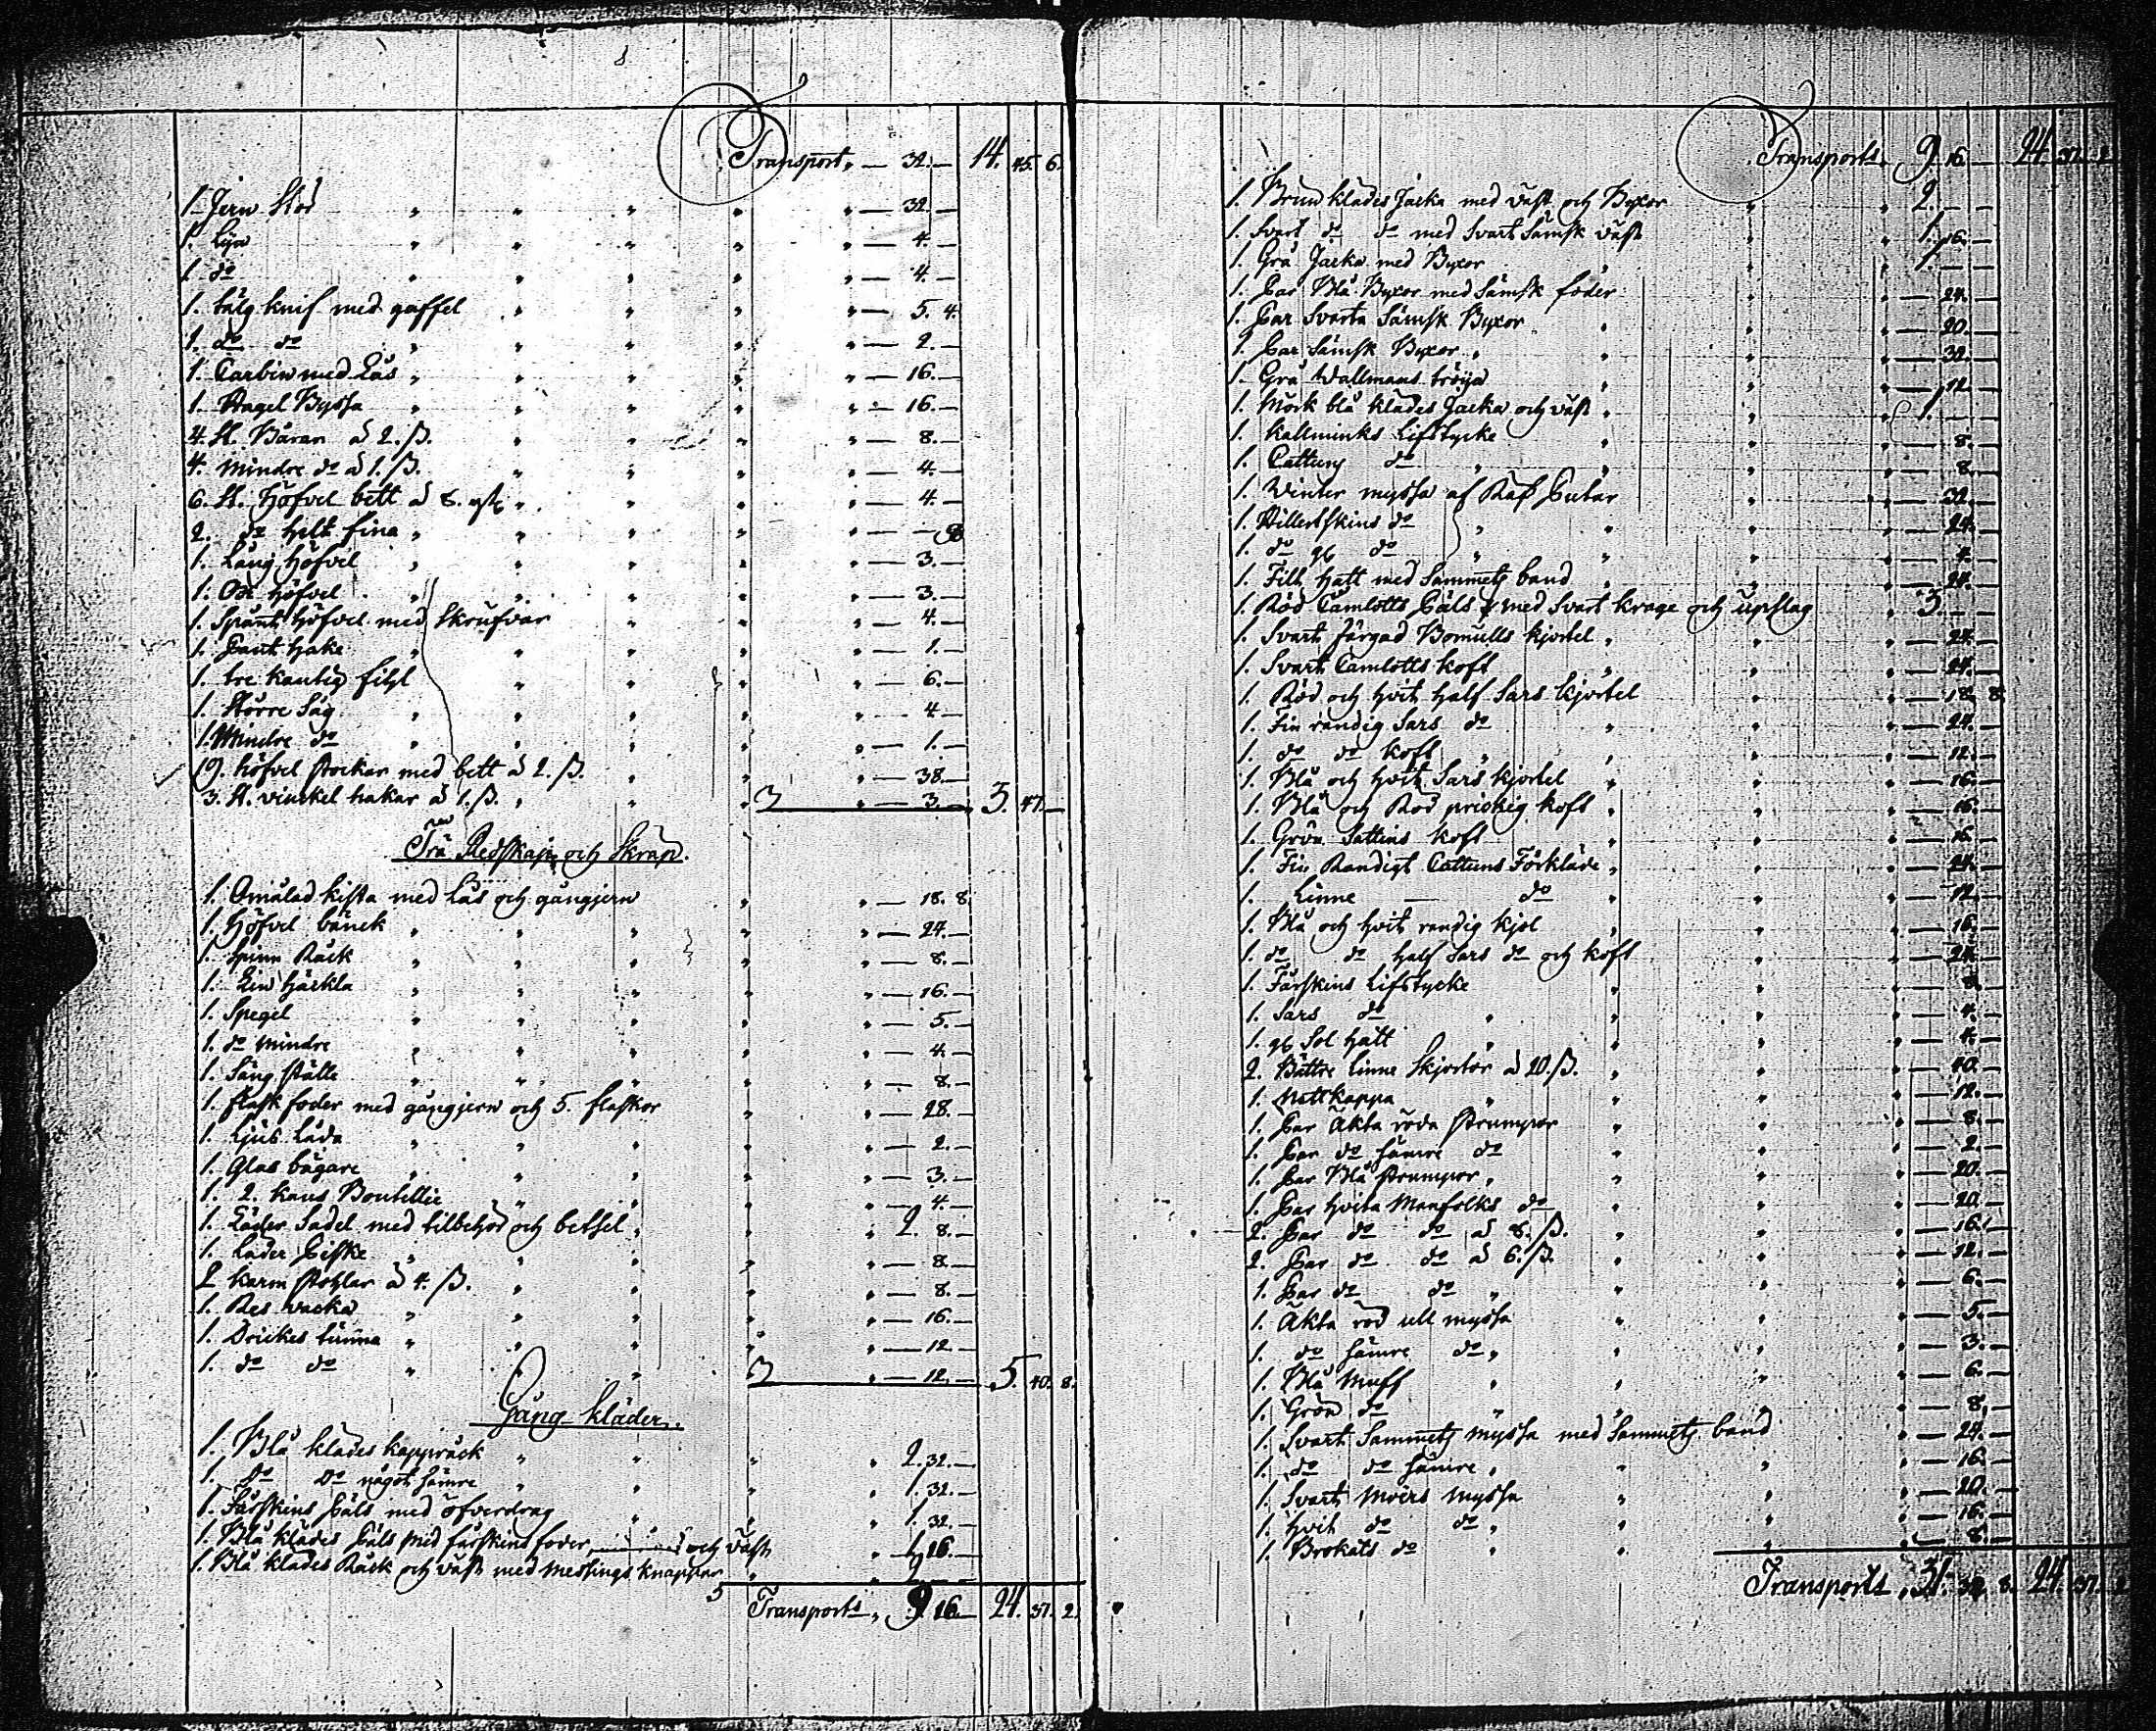 Transport, — 32. — 14. 45. 6.
1. Jern Stör — 32. —
1. Lija — 4. —
1. do — 4. —
1. tälg knif med gaffel — 5. 4.
1. do do — 2. —
1. Carbin med Lås — 16. —
1. Hagel Byssa — 16. —
4. St. Bårar à 2. ß. — 8. —
4. mindre do à 1. ß. — 4. —
6. St. höfvel bett à 8. — 4. —
2. do helt fina — 8
1. Lång höfvel — 3. —
1. höfvel — 3. —
1. Spunt höfvel med Skrufvar — 4. —
1. Bant hake — 1. —
1. tre kantig fihl — 6. —
1. Större Såg — 4. —
1. Mindre do — 1. —
19. höfvel stockar med bett à 2. ß. — 38. —
3. St. vinckel hakar à 1. ß. — 3. — 3. 47. —
Trä Redskap och Skrap.
1. Omålad kista med Lås och gångjern — 18. 8
1. höfvel bänck — 24. —
1. Spinn Råck — 8. —
1. Lin häckla — 16. —
1. Spegel — 5. —
1. do mindre — 4. —
1. Säng ställe — 8. —
1. flask foder med gångjern och 5. flaskor — 28. —
1. Ljus Låda — 2. —
1. Glas bägare — 3. —
1. 2. kans Bouteille — 4. —
1. Läder Sadel med tilbehör och betsel 2. 8. —
1. Läder Piska — 8. —
2 karm stohlar à 4. ß. — 8. —
1. Res vacka — 16. —
1. Drickes tunna — 12. —
1. do do — 12. — 5. 40. 8.
Gång kläder.
1. Blå klädes kappråck 2. 32. —
1. do do något sämre 1. 32. —
1. Fårskins Päls med öfverdrag 1. 32. —
1. Blå klädes Päls med fårskins foder och väst 1. 16. —
1. Blå klädes Råck och väst med messings knappar
Transporto, 9. 16. — 24. 37. 2.
Transporto, 9. 16. — 24. 37. 2
1. Brun klädes Jacka med väst och Byxor 2. —
1. Svart do do med Svart Sämsk väst 1. 16. —
1. Grå Jacka med Byxor 1. —
1. Par Blå Byxor med Sämsk foder — 24. —
1. Par Svarta Sämsk Byxor — 20. —
1. Par Sämsk Byxor — 32. —
1. Grå Wallmans tröija — 12. —
1. Mörk blå klädes Jacka och väst 1. —
1. kallminks Lifstycke — 8. —
1. Cattuns do — 8. —
1. Winter myssa af Räf — 32. —
1. Hillerskins do — 24. —
1. do do — 4. —
1. Filt hatt med Sammets band — 24. —
1. Röd Camlotts Päls med Svart krage och upslag 3. —
1. Svart färgad Bomulls kjortel — 24. —
1. Svart Camlotts koft — 24. —
1. Röd och hvit half Sars kjortel — 18. 8.
1. Fin randig Sars do — 24. —
1. do do koft — 12. —
1. Blå och hvit Sars kjortel — 16. —
1. Blå och Röd prickig koft — 16. —
1. Grön Sattins koft — 16. —
1. Fin Randigt Cattuns Förkläde — 24. —
1. Linne — do — 12. —
1. Blå och hvit randig kjol — 16. —
1. do do half Sars do och koft — 24. —
1. Fårskins Lifstycke — 8. —
1. Sars do — 4. —
1. Sol hatt — 4. —
2. Bättre Linne Skjortor à 20. ß. — 40. —
1. Nattkappa — 12. —
1. Par Äkta röda strumpor — 8. —
1. Par do sämre do — 2. —
1. Par Blå strumpor — 20. —
1. Par hvita Manfolks do — 20. —
2. Par do do à 8. ß. — 16. —
2. Par do do à 6. ß. — 12. —
1. Par do do — 6. —
1. Äkta röd ull myssa — 5. —
1. do sämre do — 3. —
1. Blå Muff — 6. —
1. Grön do — 8. —
1. Svart Sammets myssa med Sammets band — 24. —
1. do do sämre — 16. —
1. Svart Moirs Myssa — 20. —
1. hvit do do — 16. —
1. Brokats do — 8. —
Transporto, 31. 32. 8. 24. 37. 2